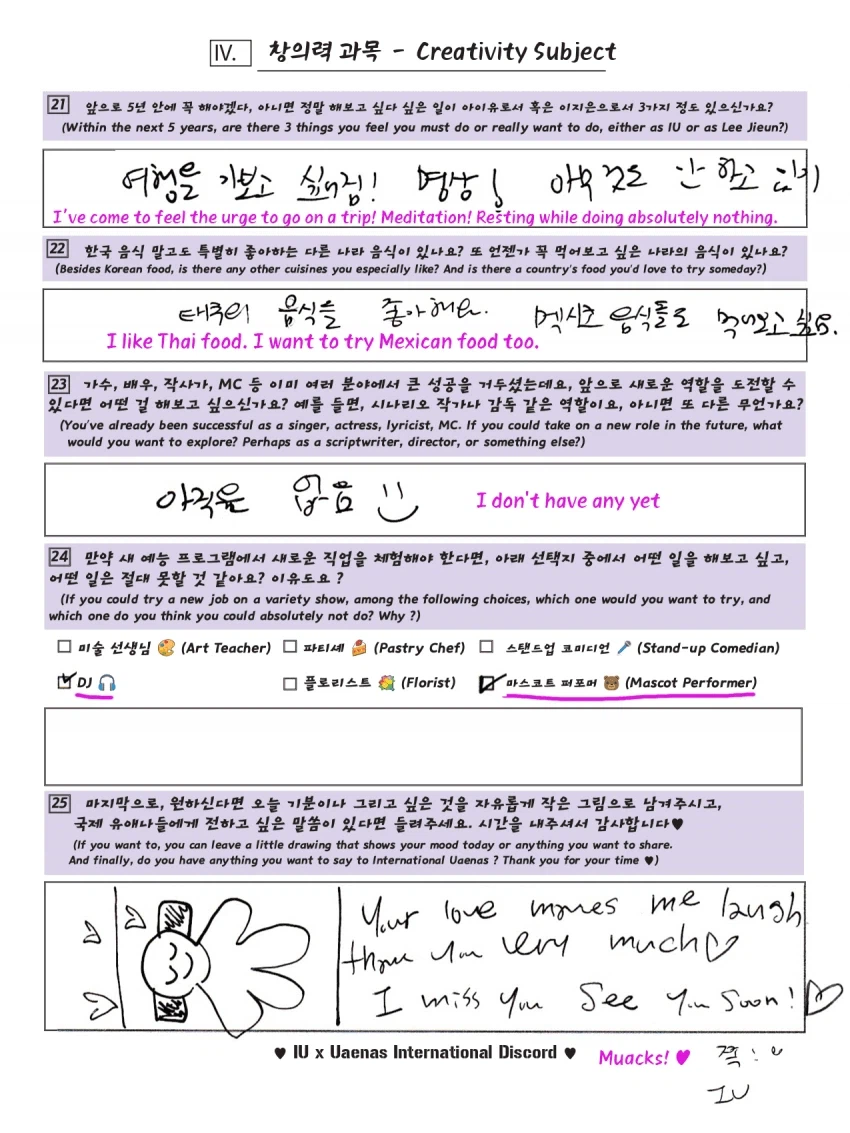 IV. 창의력 과목 - Creativity Subject
21 앞으로 5년 안에 꼭 해야겠다, 아니면 정말 해보고 싶다 싶은 일이 아이유로서 혹은 이지은으로서 3가지 정도 있으신가요?
(Within the next 5 years, are there 3 things you feel you must do or really want to do, either as IU or as Lee Jieun?)
여행을 가보고 싶어짐! 명상! 아무 것도 안 하고 쉬기
I've come to feel the urge to go on a trip! Meditation! Resting while doing absolutely nothing.
22 한국 음식 말고도 특별히 좋아하는 다른 나라 음식이 있나요? 또 언젠가 꼭 먹어보고 싶은 나라의 음식이 있나요?
(Besides Korean food, is there any other cuisines you especially like? And is there a country's food you'd love to try someday?)
태국의 음식을 좋아해요. 멕시코 음식들도 먹어보고 싶어요.
I like Thai food. I want to try Mexican food too.
23 가수, 배우, 작사가, MC 등 이미 여러 분야에서 큰 성공을 거두셨는데요, 앞으로 새로운 역할을 도전할 수
있다면 어떤 걸 해보고 싶으신가요? 예를 들면, 시나리오 작가나 감독 같은 역할이요, 아니면 또 다른 무언가요?
(You've already been successful as a singer, actress, lyricist, MC. If you could take on a new role in the future, what
would you want to explore? Perhaps as a scriptwriter, director, or something else?)
아직은 없음
I don't have any yet
24 만약 새 예능 프로그램에서 새로운 직업을 체험해야 한다면, 아래 선택지 중에서 어떤 일을 해보고 싶고,
어떤 일은 절대 못할 것 같아요? 이유도요 ?
(If you could try a new job on a variety show, among the following choices, which one would you want to try, and
which one do you think you could absolutely not do? Why ?)
미술 선생님 🎨 (Art Teacher) 파티셰 🍰 (Pastry Chef) 스탠드업 코미디언 🎤 (Stand-up Comedian)
DJ 🎧 플로리스트 💐 (Florist) 마스코트 퍼포머 🐻 (Mascot Performer)
25 마지막으로, 원하신다면 오늘 기분이나 그리고 싶은 것을 자유롭게 작은 그림으로 남겨주시고,
국제 유애나들에게 전하고 싶은 말씀이 있다면 들려주세요. 시간을 내주셔서 감사합니다♥
(If you want to, you can leave a little drawing that shows your mood today or anything you want to share.
And finally, do you have anything you want to say to International Uaenas ? Thank you for your time ♥)
Your love makes me laugh
thank you very much♡
I miss you See you soon!♡
♥ IU x Uaenas International Discord ♥
Muacks! ♥ 쪽!
IU